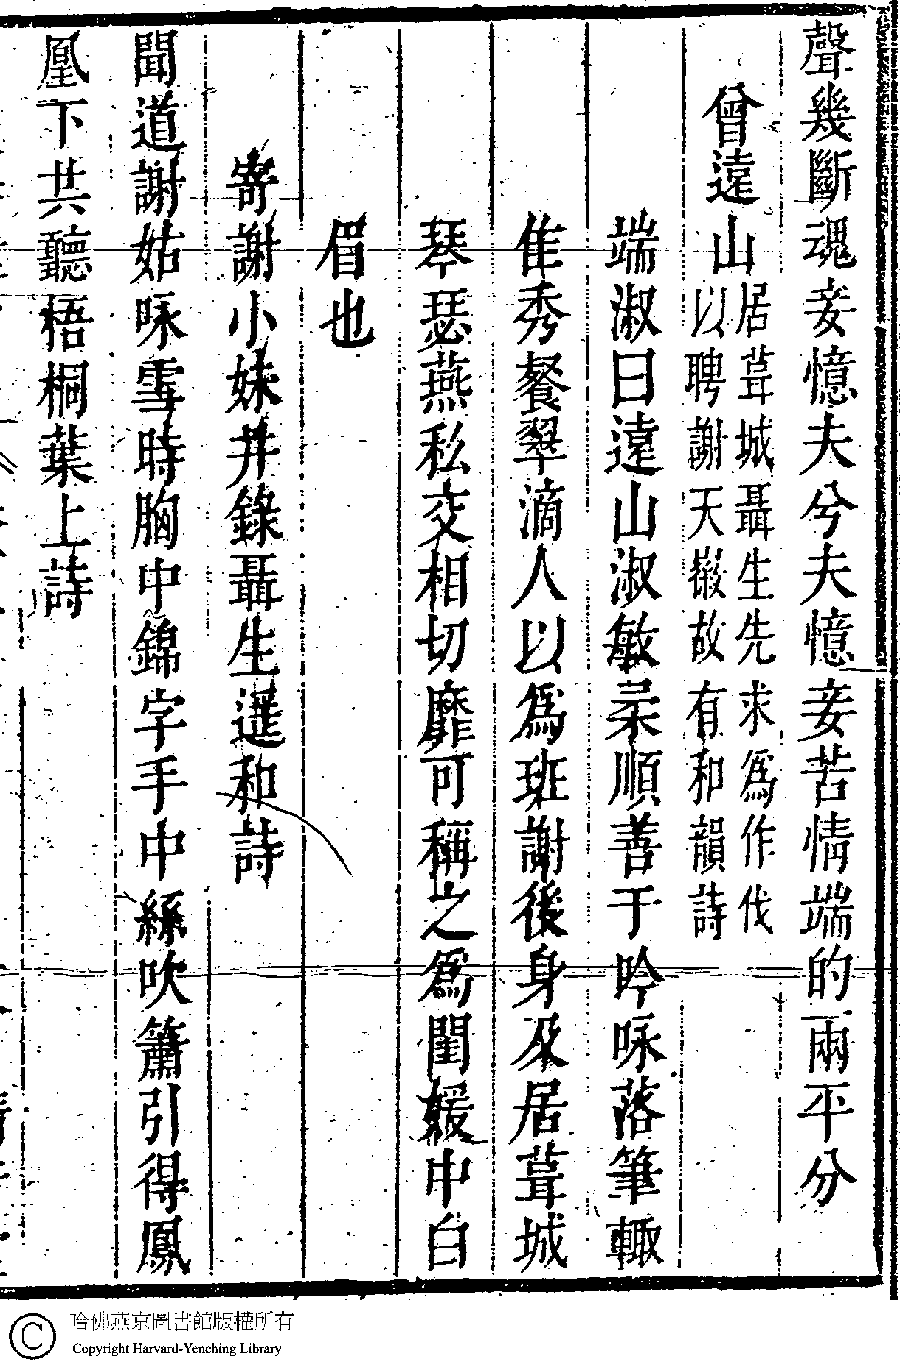 聲幾斷魂妾憶夫兮夫憶妾苦情端的兩平分
曾遠山
居葺城聶生先求爲作伐
以聘謝天嶶故有和韻詩
端淑曰遠山淑敏柔順善于吟咏落筆輙
隹秀餐翠滴人以爲班謝後身及居葺城
琴瑟燕私交相切靡可稱之爲閨媛中白
眉也
寄謝小妹井錄聶生遥和詩
聞道謝姑咏雪時胸中錦字手中絲吹簫引得鳳
凰下共聽梧桐葉上詩
哈佛燕京圖書館版權所有
Copyright Harvard-Yenching Library